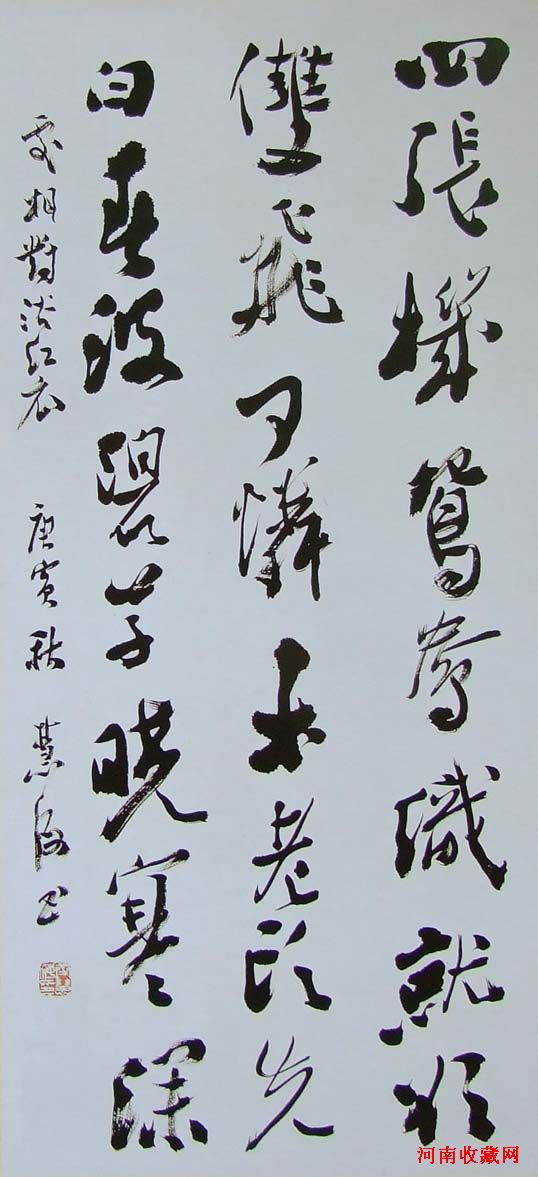 四張機鴛鴦織就欲
雙飛可憐未老頭先
白春波碧草曉寒深
處相對浴紅衣 庚寅秋 慧书
河南收藏网